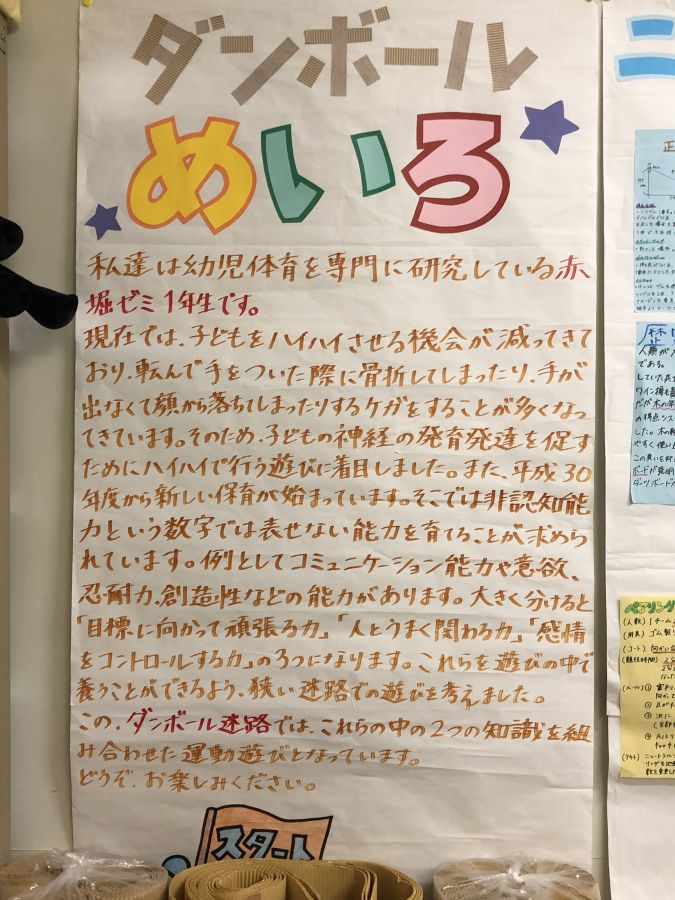 ダンボール
めいろ
私達は幼児体育を専門に研究している赤
堀ゼミ1年生です。
現在では、子どもをハイハイさせる機会が減ってきて
おり、転んで手をついた際に骨折してしまったり、手が
出なくて顔から落ちてしまったりするケガをすることが多くなっ
てきています。そのため、子どもの神経の発育発達を促す
ためにハイハイで行う遊びに着目しました。また、平成30
年度から新しい保育が始まっています。そこでは非認知能
力という数字では表せない能力を育てることが求めら
れています。例としてコミュニケーション能力や意欲、
忍耐力、創造性などの能力があります。大きく分けると
「目標に向かって頑張る力」「人とうまく関わる力」「感情
をコントロールする力」の3つになります。これらを遊びの中で
養うことができるよう、狭い迷路での遊びを考えました。
この、ダンボール迷路では、これらの中の2つの知識を組
み合わせた運動遊びとなっています。
どうぞ、お楽しみください。
スタート
歴
人類が
である。
していた兵
ワイン樽
だが木の年
の得点シス
した。木の
やすく使い
この美い
ボードが発明
ダーツボードが
ペアリング
(人数) 1チーム
(用具) ゴム製
(コート)
(競技時間)
(ルール) ①
②
③
④